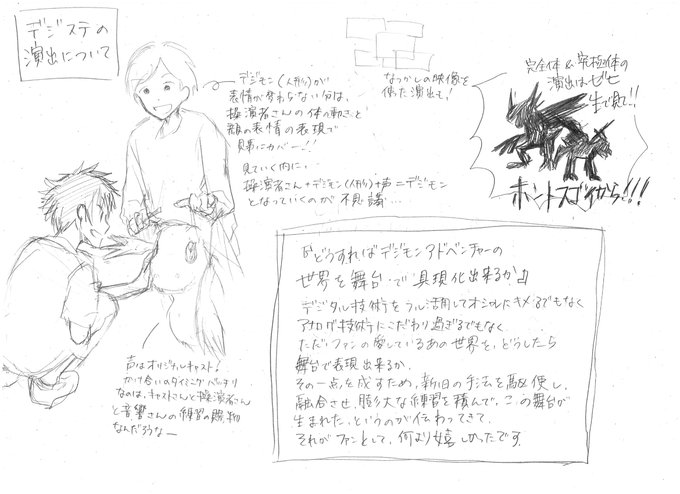 デジステの
演出について
デジモン(人形)が
表情が変わらない分は、
操演者さんの体の動きと
顔の表情の表現で
見事にカバー!!
見ていく内に…
操演者さん+デジモン(人形)+声=デジモン
となっていくのが不思議…
なつかしの映像を
使った演出も!
完全体&究極体の
演出はぜひ
生で見て!!
ホントスゴイから!!!
声はオリジナルキャスト!
かけ合いのタイミングバッチリ
なのは、キャストさんと操演者さん
と音響さんの練習の賜物
なんだろうなー
『どうすればデジモンアドベンチャーの
世界を舞台で具現化出来るか』
デジタル技術をフル活用してオシャレにキメるでもなく
アナログ技術にこだわり過ぎるでもなく
ただ、ファンの愛しているあの世界を、どうしたら
舞台で表現出来るか。
その一点を成すため、新旧の手法を駆使し、
融合させ、膨大な練習を積んで、この舞台が
生まれた、というのが伝わってきて、
それがファンとして、何より嬉しかったです。